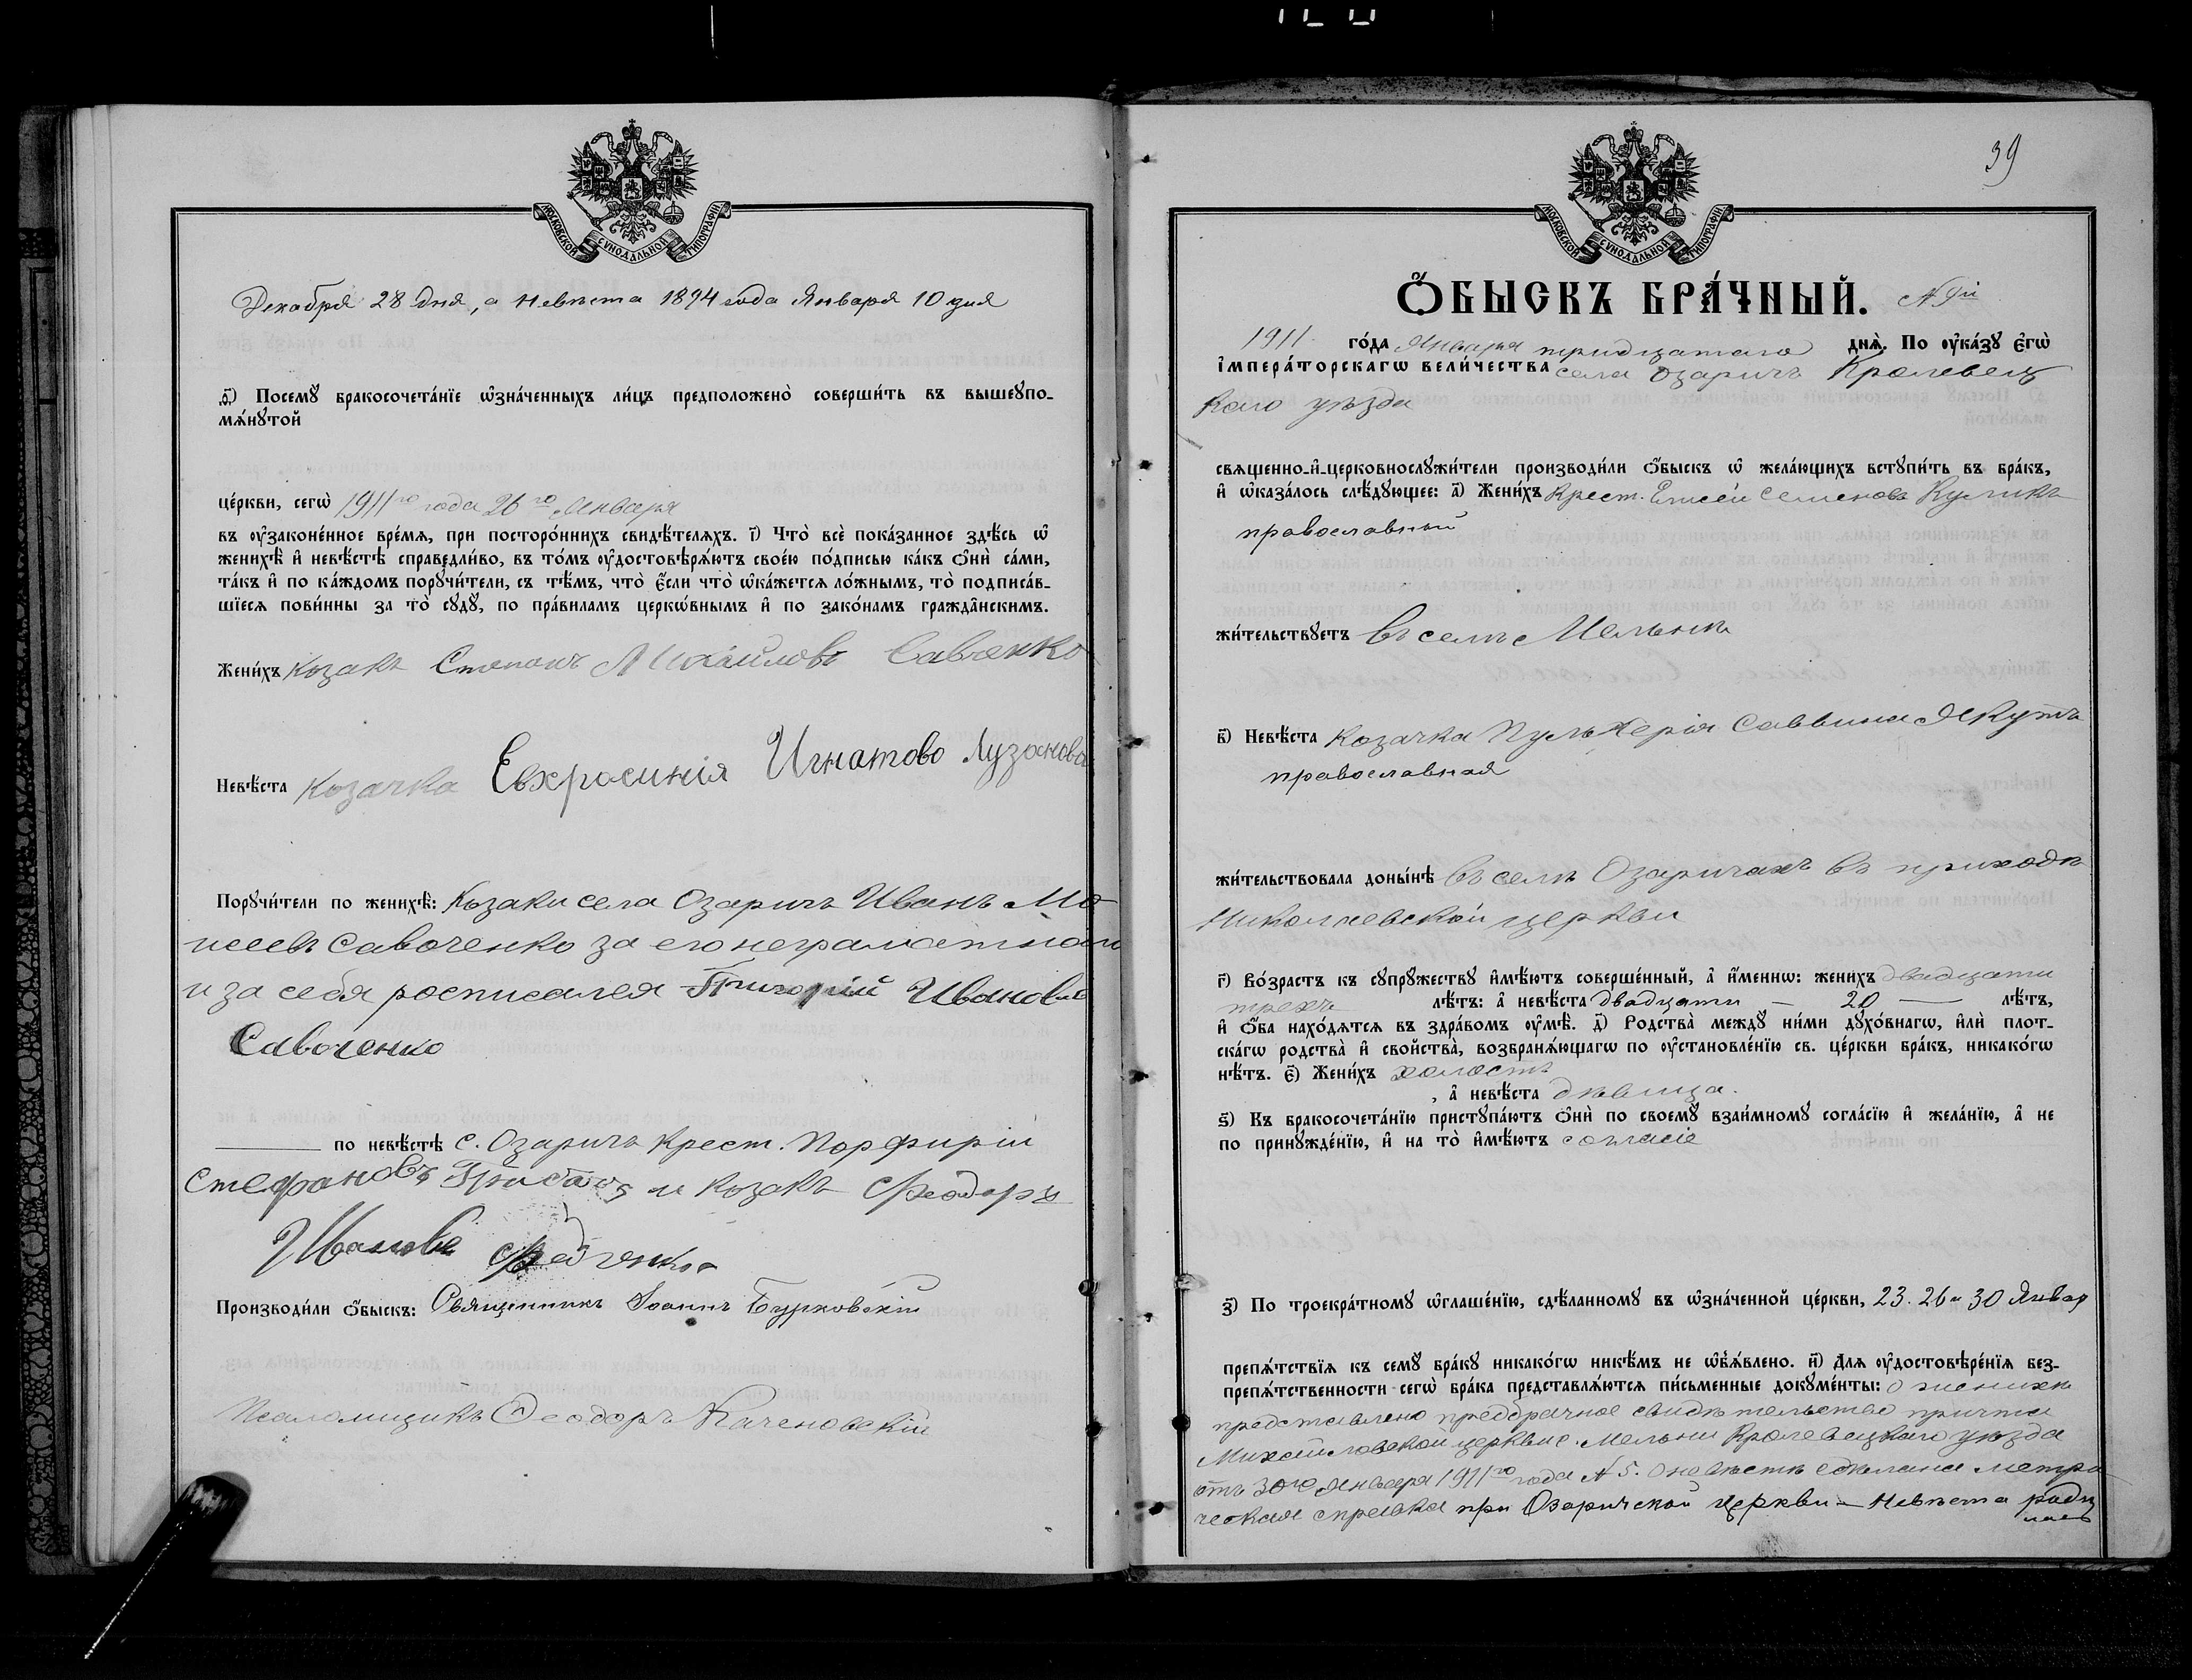 МОСКОВСКОЙ СѴНОДАЛЬНОЙ ТИПОГРАФІИ
Декабря 28 дня, а невѣста 1894 года Января 10 дня
д҃) Посемꙋ̀ бракосочета́нїе ѡ҆зна́ченныхъ ли́цъ предположено̀ соверши́ть въ вышеꙋпо-
мѧ́нꙋтой
це́ркви, сегѡ̀ 1911го года 26го Января
въ ᲂу҆зако́ненное вре́мѧ, при посторо́ннихъ свидѣ́телѧхъ. і҃) Что̀ всѐ пока́занное здѣ́сь ѡ҆
женихѣ̀ и҆ невѣ́стѣ справедли́во, въ то́мъ ᲂу҆достовѣрѧ́ютъ свое́ю по́дписью ка́къ ѻ҆нѝ са́ми,
та́къ и҆ по ка́ждомъ порꙋчи́тели, съ тѣ́мъ, что̀ є҆́сли что̀ ѡ҆ка́жетсѧ ло́жнымъ, то̀ подписа́в-
шїесѧ пови́нны за то̀ сꙋдꙋ̀, по пра́виламъ церкѡ́внымъ и҆ по зако́намъ гражда̑нскимъ.
Жени́хъ козакъ Степанъ Михаиловъ Савченко
Невѣ́ста козачка Евхросинія Игнатово Лузанова
Порꙋчи́тели по женихѣ̀: Козаки села Озаричъ Иванъ Мо
исеевъ Савоченко за его неграмотнаго
и за себя росписался Григорій Ивановъ
Савоченко
по невѣ́стѣ с. Озаричъ Крест. Порфирій
Стефановъ и козакъ Феодоръ
Ивановъ
Производи́ли ѻ҆́быскъ: Священникъ Іоаннъ Бурковскій
Псаломщикъ Ѳеодоръ Каченовскій
39
МОСКОВСКОЙ СѴНОДАЛЬНОЙ ТИПОГРАФІИ
Ѻ҆́БЫСКЪ БРА́ЧНЫЙ. № 9й
1911 го́да Января тридцатаго днѧ̀. По ᲂу҆ка́зꙋ є҆гѡ̀
і҆мпера́торскагѡ вели́чества села Озаричъ Кролевец
каго уѣзда
свѧщенно-и҆-церковнослꙋжи́тели производи́ли ѻ҆́быскъ ѡ҆ жела́ющихъ встꙋпи́ть въ бра́къ,
и҆ ѡ҆каза́лось слѣ́дꙋющее: а҃) Жени́хъ Крест. Елисей Семеновъ Куликъ
православный
жи́тельствꙋетъ въ селѣ Мельнѣ
в҃) Невѣ́ста козачка Пульхерія Саввина Якутъ
православная
жи́тельствовала доны́нѣ въ селѣ Озаричахъ въ приходѣ
Николаевской церкви
г҃) Во́зрастъ къ сꙋпрꙋ́жествꙋ и҆мѣ́ютъ соверше́нный, а҆ и҆́меннѡ: жени́хъ двадцати
трехъ лѣ́тъ: а҆ невѣ́ста двадцати — 20 — лѣ́тъ,
и҆ ѻ҆́ба нахо́дѧтсѧ въ здра́вомъ ᲂу҆мѣ̀. д҃) Родства̀ междꙋ̀ ни́ми дꙋхо́внагѡ, и҆лѝ плот-
ска́гѡ родства̀ и҆ свойства̀, возбранѧ́ющагѡ по ᲂу҆становле́нїю св. це́ркви бра́къ, никако́гѡ
нѣ́тъ. є҃) Жени́хъ холостъ
, а҆ невѣ́ста дѣвица.
ѕ҃) Къ бракосочета́нїю пристꙋпа́ютъ ѻ҆нѝ по своемꙋ̀ взаи́мномꙋ согла́сїю и҆ жела́нїю, а҆ не
по принꙋжде́нїю, и҆ на то̀ и҆мѣ́ютъ согласіе
з҃) По троекра́тномꙋ ѡ҆глаше́нїю, сдѣ́ланномꙋ въ ѡ҆зна́ченной це́ркви, 23. 26 и 30 Январ
препѧ́тствїѧ къ семꙋ̀ бра́кꙋ никако́гѡ никѣ́мъ не ѡ҆б̾ѧ́влено. и҃) Длѧ ᲂу҆достовѣре́нїѧ без-
препѧ́тственности сегѡ̀ бра́ка представлѧ́ютсѧ пи́сьменные докꙋме́нты: о женихѣ
представлено предбрачное свидѣтельство причта
Михайловской церкви с. Мельни Кролевецкаго уѣзда
отъ 30го Января 1911го года № 5. О невѣстѣ сдѣлана метри
ческая справка при Озаричской церкви — невѣста роди
лась